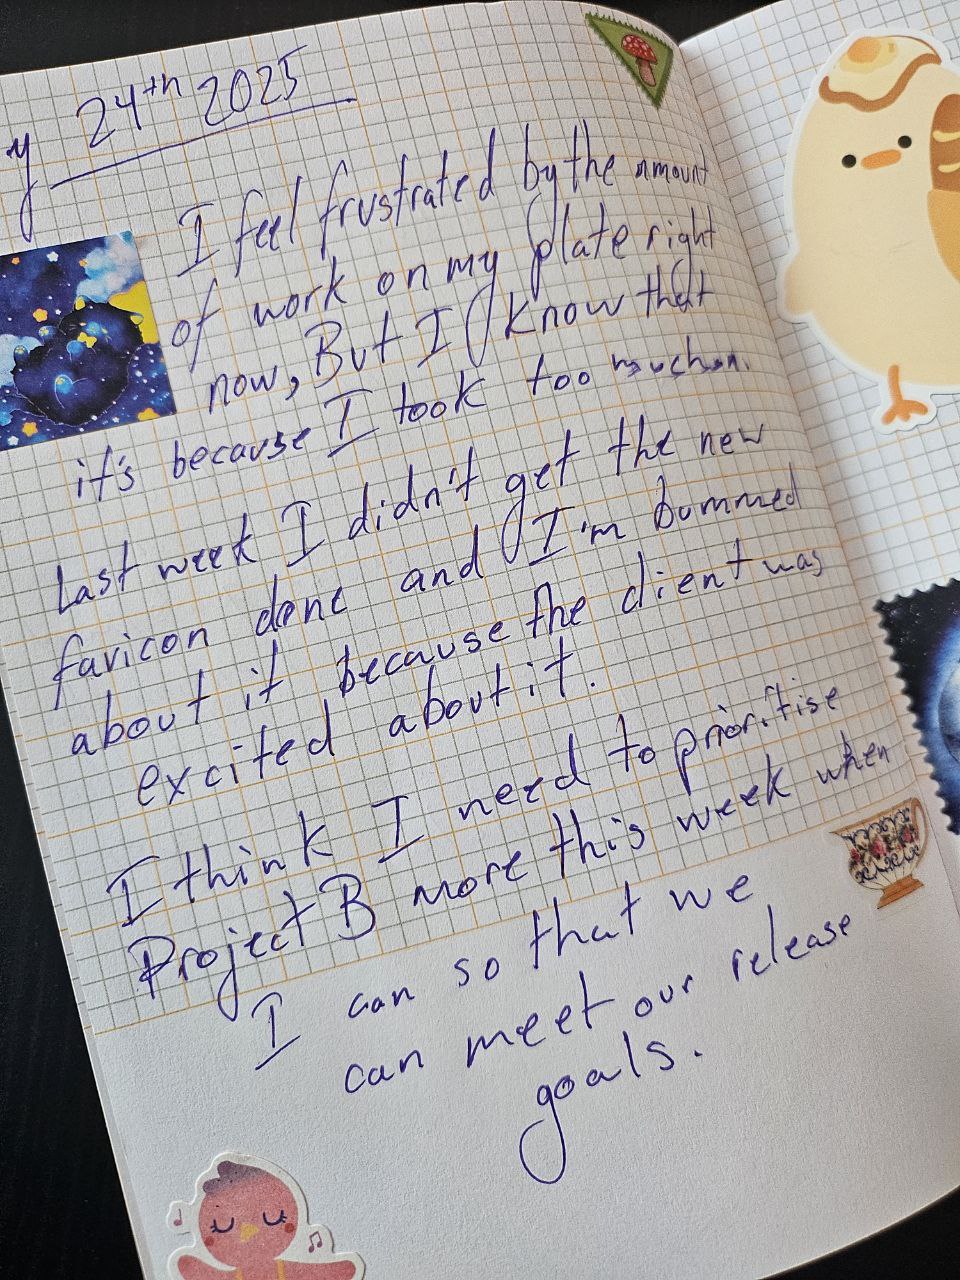 y 24th 2025
I feel frustrated by the amount
of work on my plate right
now, But I know that
it's because I took too much on.
Last week I didn't get the new
favicon done and I'm bummed
about it because the client was
excited about it.
I think I need to prioritise
Project B more this week when
I can so that we
can meet our release
goals.